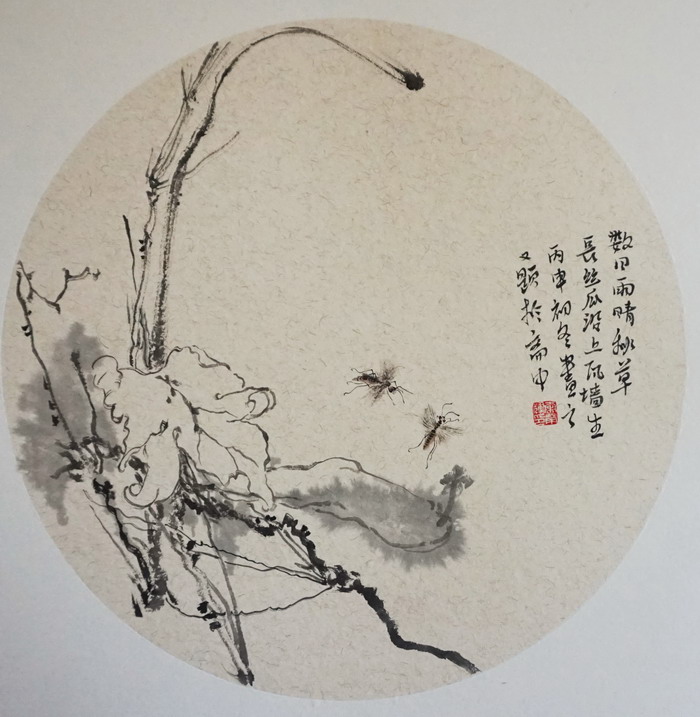 数日雨晴秋草
長丝瓜沿上瓦墙生
丙申初冬畫之
又題於斋中